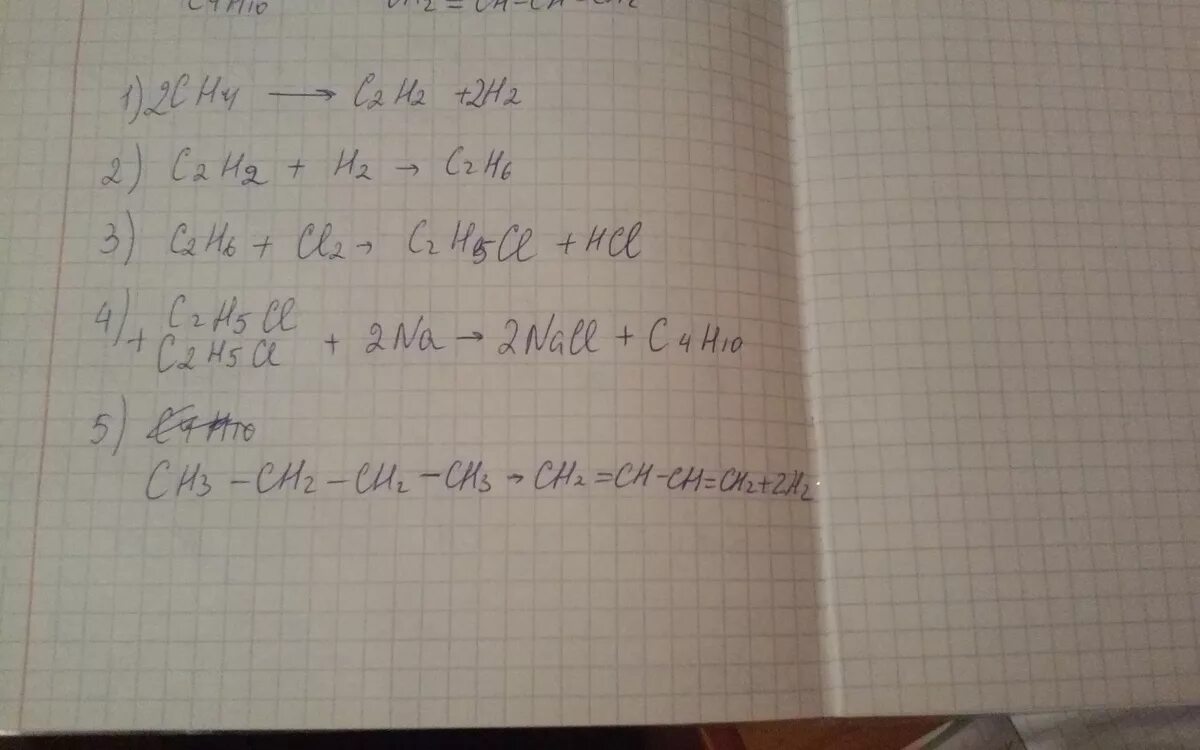 C4H10 CH2=CH-CH=CH2
1) 2CH4 → C2H2 +2H2
2) C2H2 + H2 → C2H6
3) C2H6 + Cl2 → C2H5Cl + HCl
4) C2H5Cl
+ C2H5Cl + 2Na → 2NaCl + C4H10
5) C4H10
CH3 – CH2 – CH2 – CH3 → CH2 =CH-CH=CH2+2H2